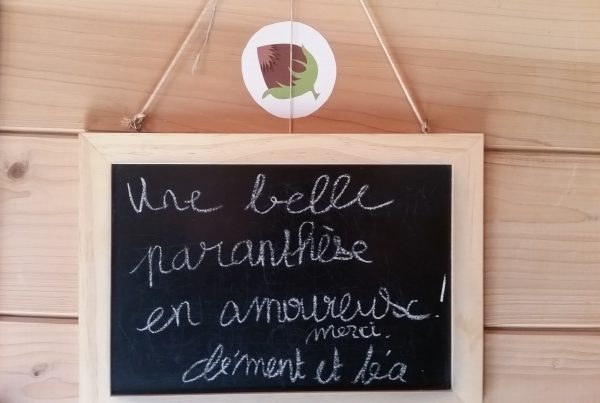 Une belle
paranthèse
en amoureux!
merci.
clément et léa